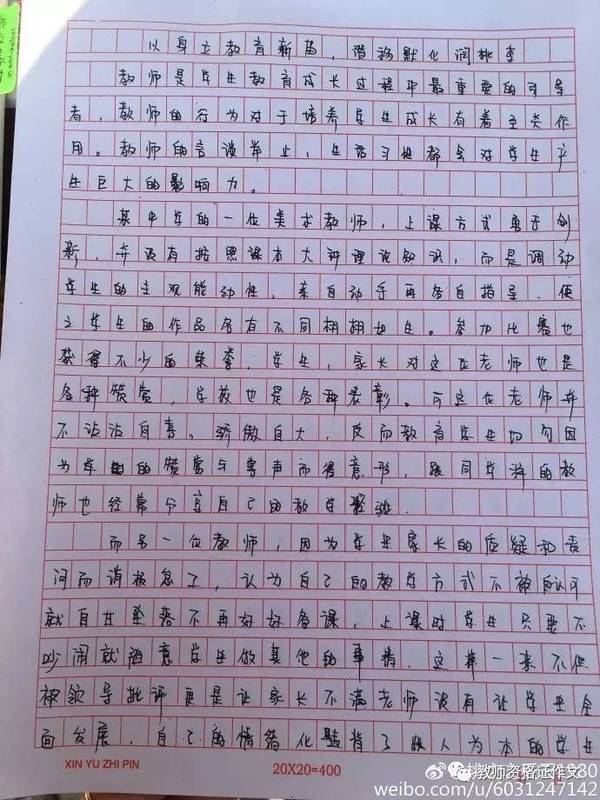 以身立教育新苗，潜移默化润桃李
教师是学生教育成长过程中最重要的引导
者，教师的行为对于培养学生成长有着至关作
用。教师的言谈举止，生活习性都会对学生产
生巨大的影响力。
某中学的一位美术教师，上课方式勇于创
新，并没有按照课本大讲理论知识，而是调动
学生的主观能动性，亲自动手再各自指导，使
之学生的作品各有不同栩栩如生。参加比赛也
获得不少的荣誉，学生，家长对这位老师也是
各种赞赏，学校也是各种表彰。可这位老师并
不沾沾自喜，骄傲自大，反而教育学生切勿因
为学的赞赏与粤声而得意形，跟同学科的教
师也经常分享自己的教学经验
而另一位教师，因为学生家长的质疑和责
问而消极怠了，认为自己的教学方式不被认可
就自甘坠落不再好好备课，上课时学生只要不
吵闹就随意学生做其他的事情，这样一来不但
被领导批评更是让家长不满老师没有让学生全
面发展，自己的情绪化违背了以人为本的学生
XIN YU ZHI PIN
20X20=400
教师资格证作文
weibo.com/u/6031247142